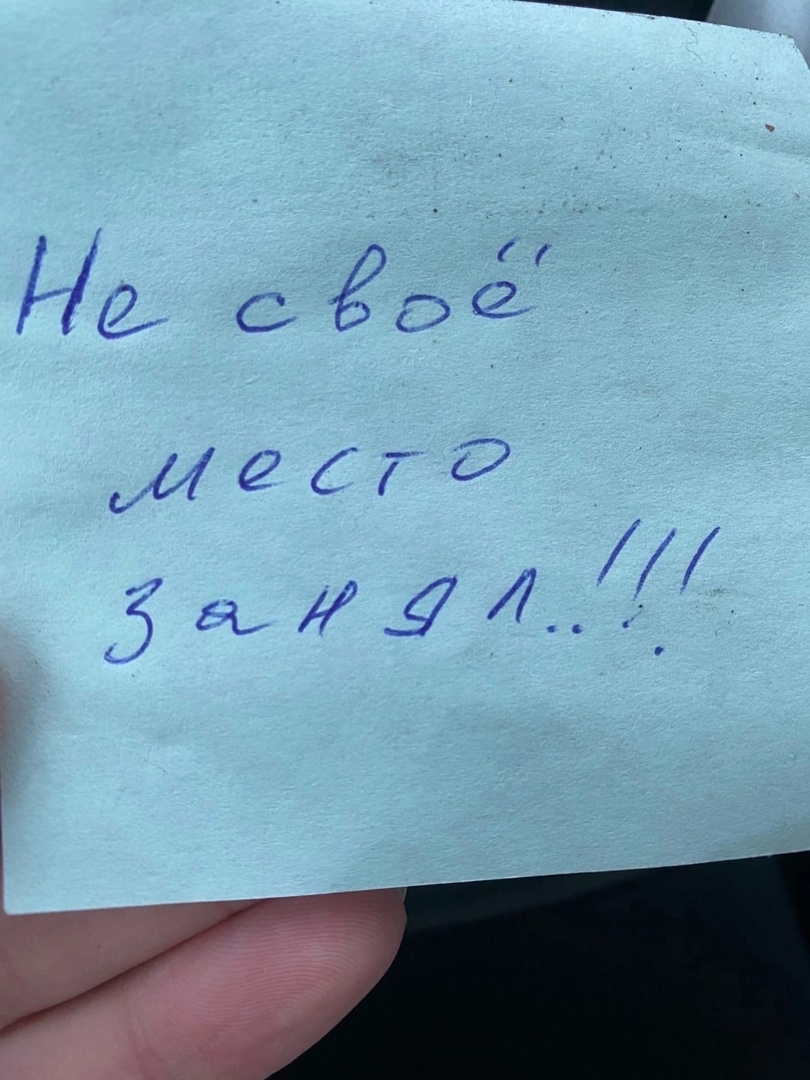 Не своё
место
занял..!!!